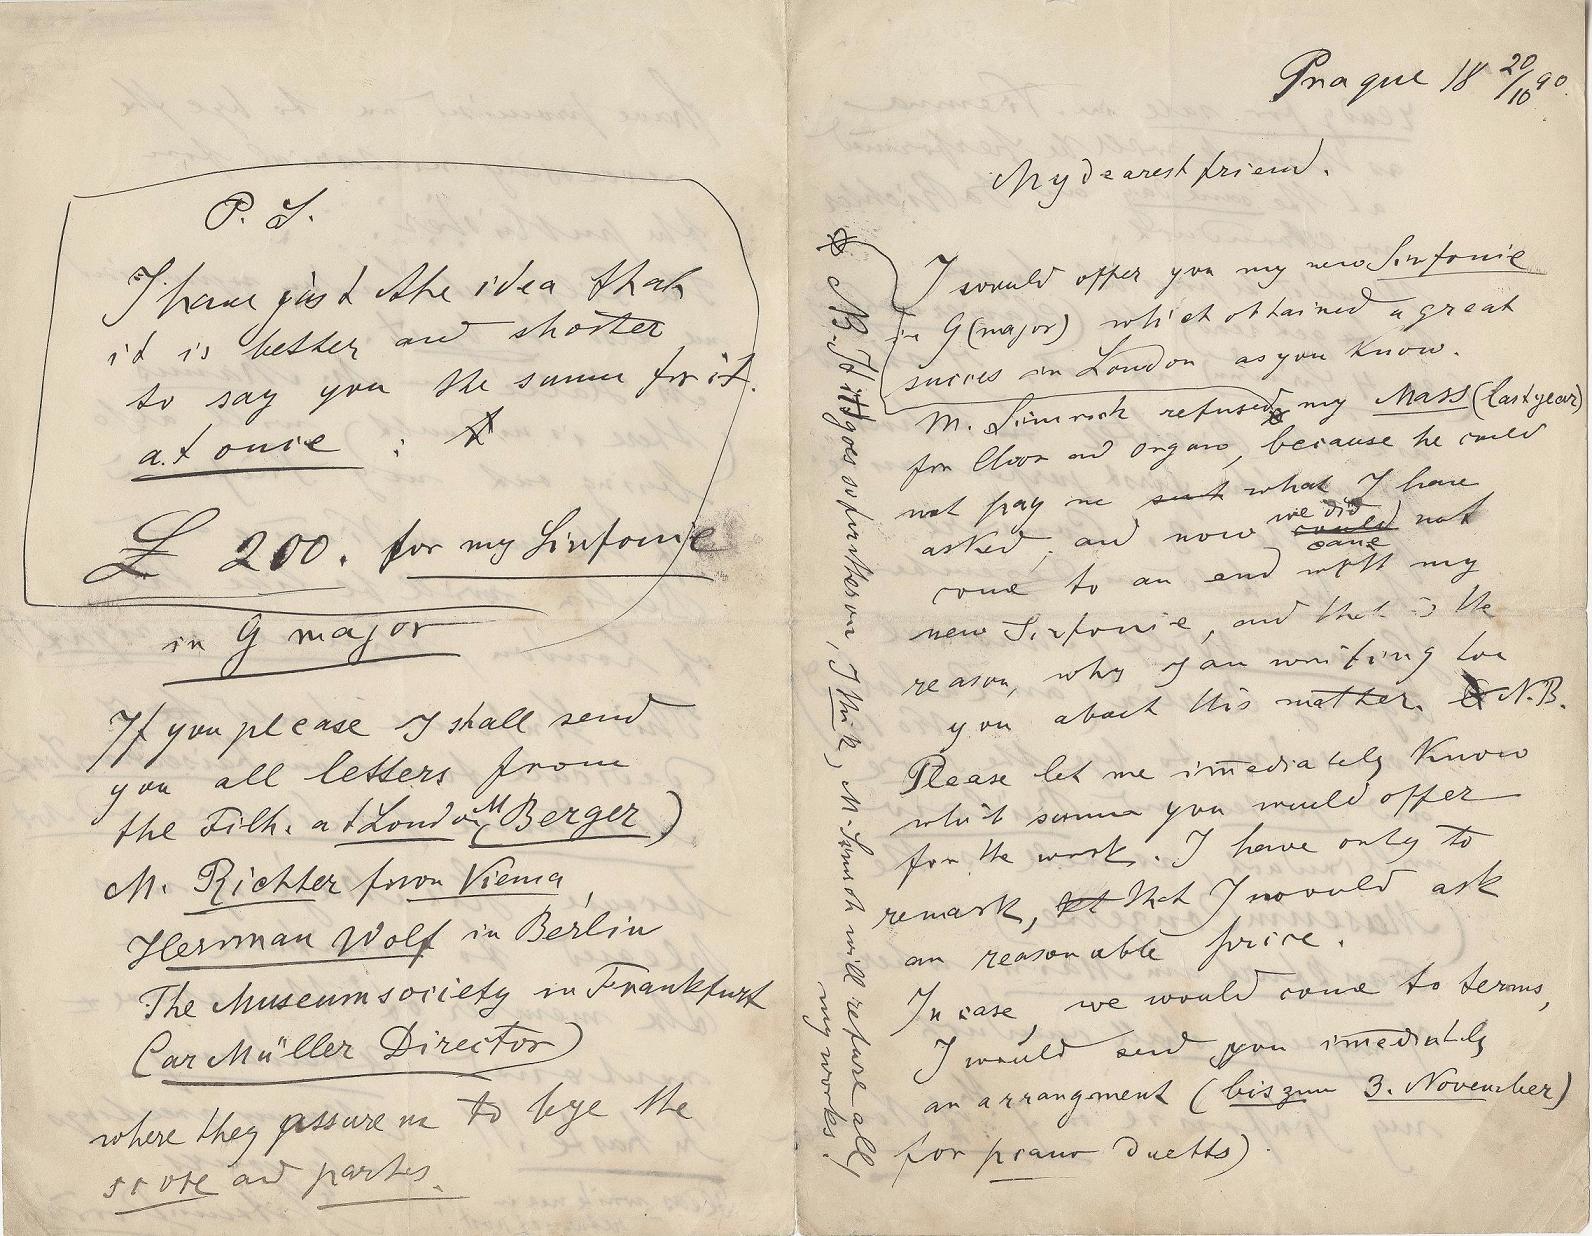 Prague 18 20/10 90.
My dearest friend.
I would offer you my new Sinfonie
in G (major) which obtained a great
succes in London as you know.
M. Simrock refused my Mass (last year)
for Choor and organo, because he could
not pay me what I have
asked, and now we did not
come to an end with my
new Sinfonie, and that is the
reason, why I am writing to
you about this matter. N.B.
Please let me imediately know
which summa you would offer
for the work. I have only to
remark, that I would ask
an reasonable price.
In case, we would come to terms,
I would send you imediately
an arrangment (bis zum 3. November)
for piano duetts).
NB. If it goes so firther on, I think, M. Simrok will refuse all,
my works.
P. S.
I have just the idea that
it is better and shorter
to say you the summa for it.
at onie :
£ 200. for my Sinfonie
in G major
If you please I shall send
you all letters from
the Filh. at London (M Berger)
M. Richter from Vienna,
Herrman Wolf in Berlin
The Museumsociety in Frankfurt
(Car Müller Director)
where they assure me to bye the
score and partes.